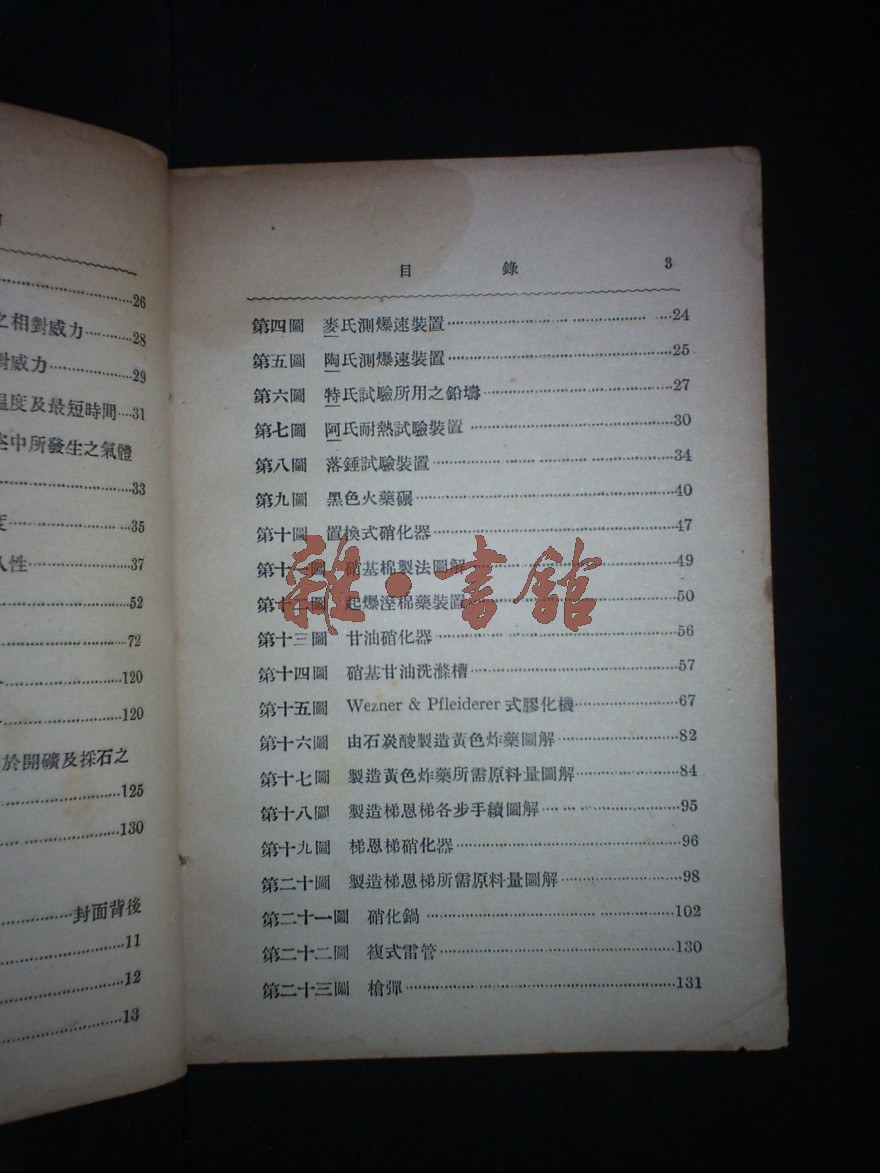 26
之相對威力……28
對威力……29
溫度及最短時間……31
中所發生之氣體
……33
度……35
入性……37
……52
……72
……120
……120
於開礦及採石之
……125
……130
……封面背後
……11
……12
……13
目錄 3
第四圖 麥氏測爆速裝置……24
第五圖 陶氏測爆速裝置……25
第六圖 特氏試驗所用之鉛壔……27
第七圖 阿氏耐熱試驗裝置……30
第八圖 落錘試驗裝置……34
第九圖 黑色火藥碾……40
第十圖 置換式硝化器……47
第十一圖 硝基棉製法圖解……49
第十二圖 起爆溼棉藥裝置……50
第十三圖 甘油硝化器……56
第十四圖 硝基甘油洗滌槽……57
第十五圖 Wezner & Pfleiderer 式膠化機……67
第十六圖 由石炭酸製造黃色炸藥圖解……82
第十七圖 製造黃色炸藥所需原料量圖解……84
第十八圖 製造梯恩梯各步手續圖解……95
第十九圖 梯恩梯硝化器……96
第二十圖 製造梯恩梯所需原料量圖解……98
第二十一圖 硝化鍋……102
第二十二圖 複式雷管……130
第二十三圖 槍彈……131
雜·書館